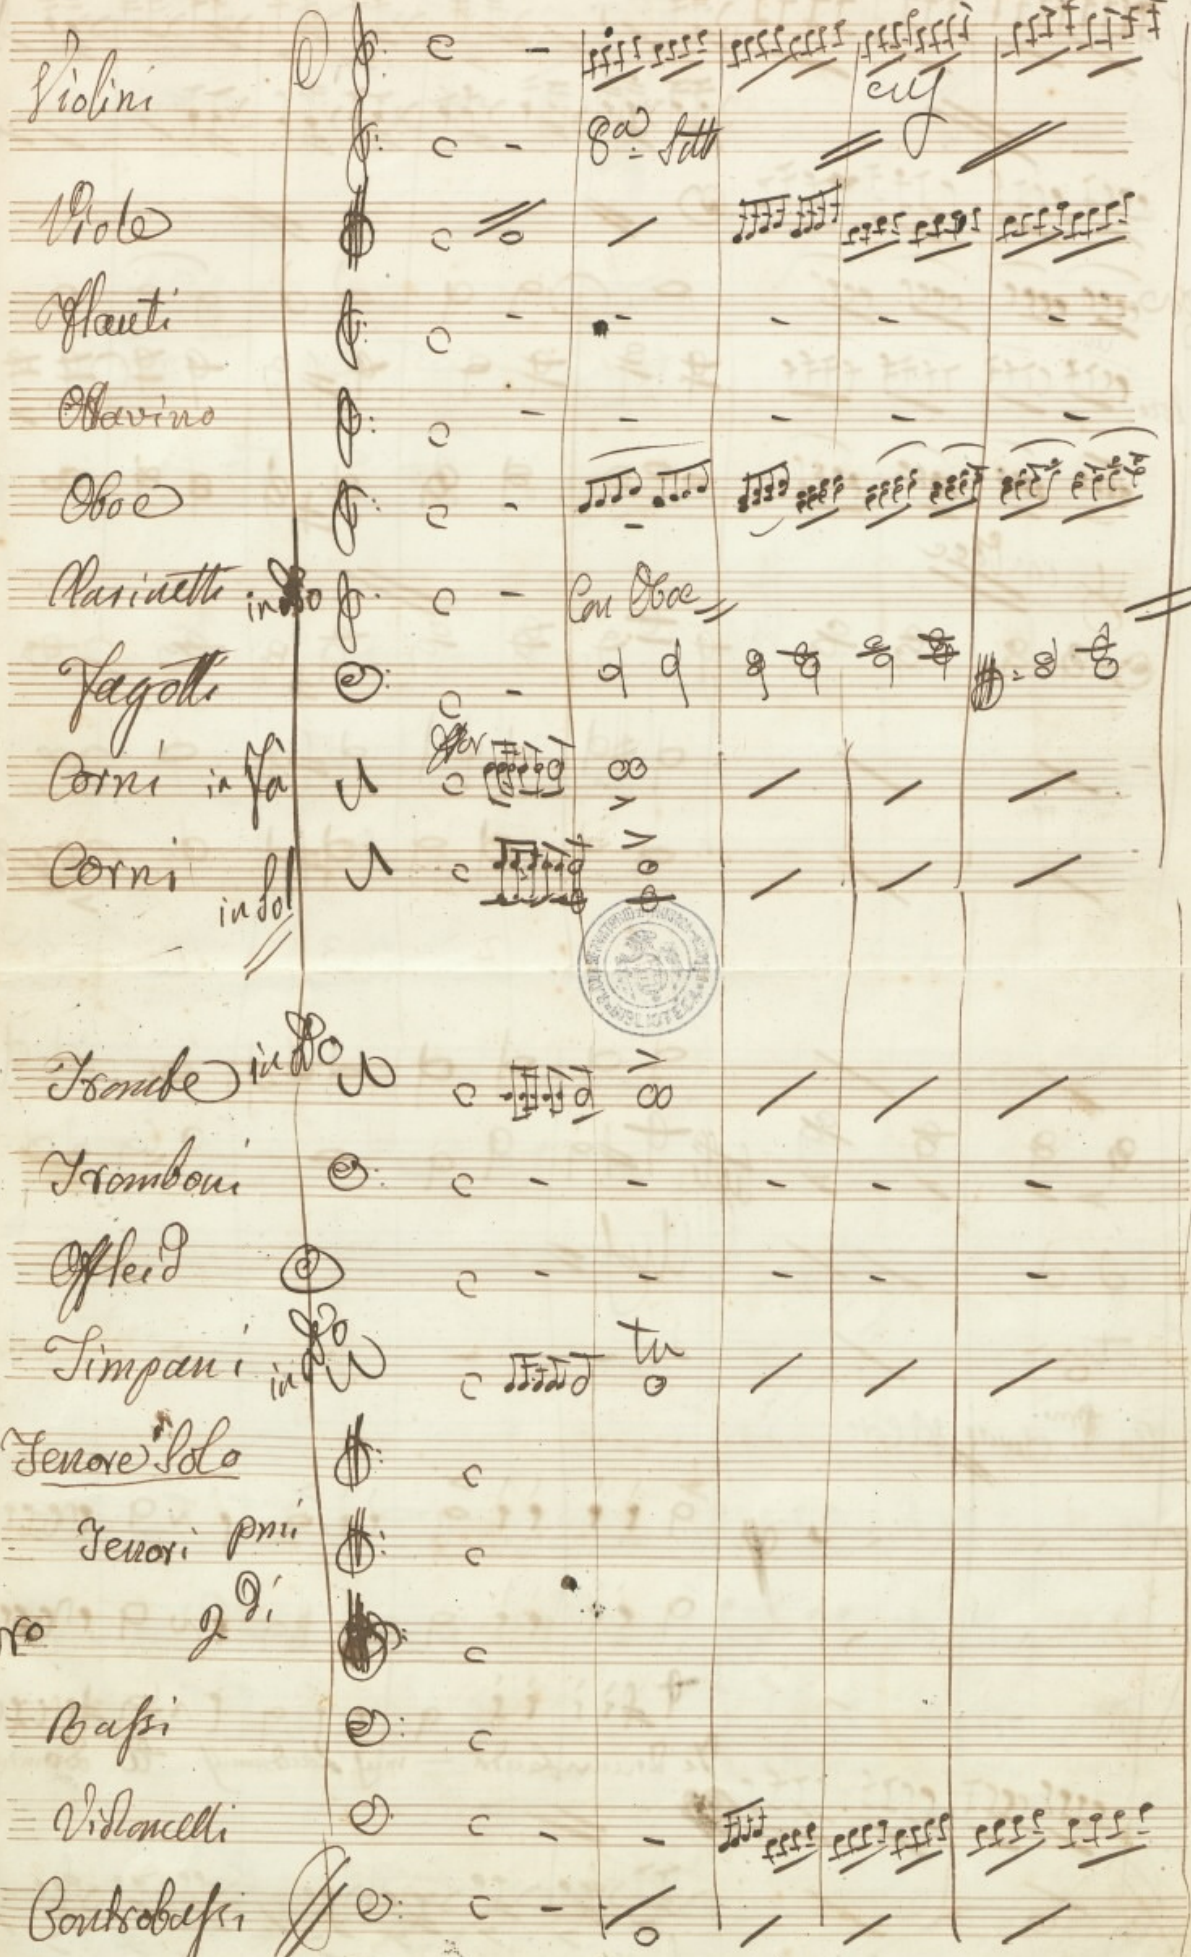 Violini
cresc
8ª Sotto
Viole
Flauti
Ottavino
Oboe
Clarinetti in Do
Con Oboe
Fagotti
Corni in Fa
Corni
in Sol
Trombe in Do
Tromboni
Offleid
Timpani in Do
tr
Tenore Solo
Tenori pmi
2di
Bassi
Violoncelli
Contrabassi
BIBLIOTECA